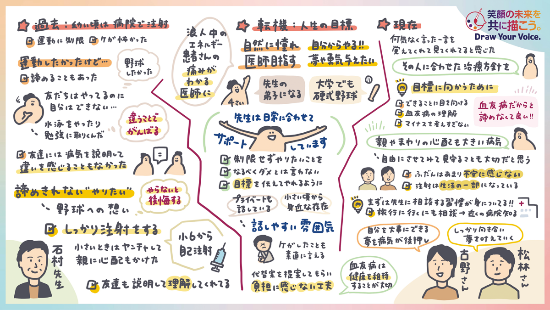 笑顔の未来を
共に描こう。
Draw Your Voice.
★過去：幼い頃は病院で注射
運動に制限
ケガが怖かった
運動したかったけど…
諦めることもあった
野球
したかった
友だちはやってるのに
自分はできない…
水泳をやったり
勉強に励んだ
違うことで
がんばる
友達には病気を説明して
違いを感じることもなかった
諦めきれない"やりたい"
やらないと
後悔する
野球への想い
しっかり注射をする
小さいときはヤンチャして
親に心配もかけた
小6から
自己注射
石村先生
友達も説明して理解してくれてる
浪人中の
エネルギー
患者さんの
痛みが
わかる
医師に
★転機：人生の目標
自然に憧れ
医師目指す
自分からやる!!
夢や勇気与えたい
先生の
弟子になる
大学でも
硬式野球
先生は日常に合わせて
サポートしています
制限せずやりたいことを
なるべくダメとは言わない
目標を伝えてやれるように
プライベートも
話している
小さい頃から
身近な存在
話しやすい雰囲気
ケガしたことも
素直に言える
代替案を提案してもらい
負担に感じない工夫
★現在
何気なく言った一言を
覚えてくれて見てくれてると感じた
その人に合わせた治療方針を
目標に向かうために
できることに目を向ける
血友病の理解
マイナスを考えすぎない
血友病だからと
諦めなくて良い!!
親やまわりの心配も大きい病気
自由にさせてみて見守ることも大切だと思う
ふだんはあまり不安に感じない
注射は生活の一部になっている
まずは先生に相談する習慣が身についてる!!
旅行に行くにも相談→近くの病院を知る
自分を大事にできる
夢を病気が後押し
しっかり向き合い
夢を叶えていく
血友病は
健康を維持
することが大切
古野さん
松林さん